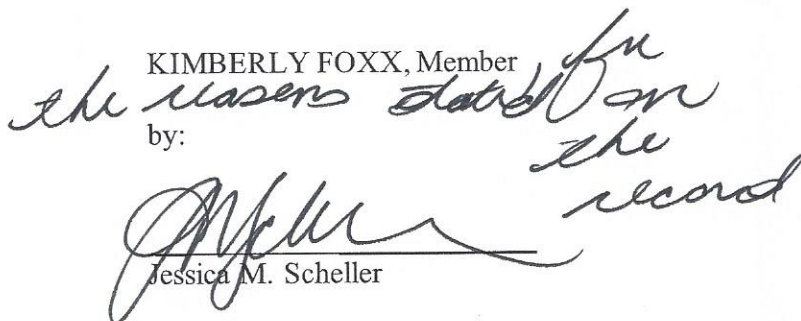 KIMBERLY FOXX, Member for
the reasons stated on
by:
the
record
Jessica M. Scheller